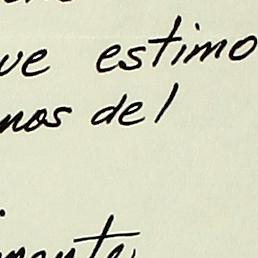 ve estimo
nos del
mente,